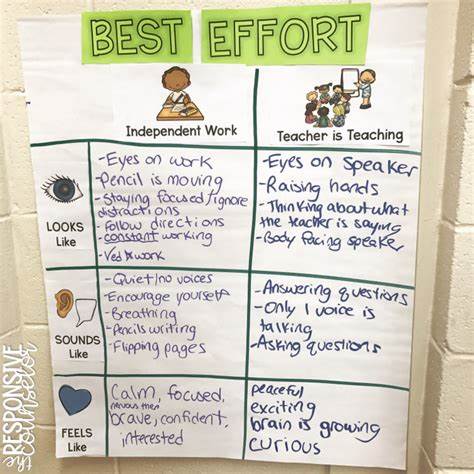 BEST EFFORT
Independent Work
Teacher is Teaching
LOOKS
Like
- Eyes on work
- Pencil is moving
- Staying focused/ignore
distractions
- Follow directions
- constant working
- work
- Eyes on Speaker
- Raising hands
- Thinking about what
the teacher is saying
- Body facing speaker
SOUNDS
Like
- Quiet/no voices
- Encourage yourself
- Breathing
- Pencils writing
- Flipping pages
- Answering questions
- Only 1 voice is
talking
- Asking questions
FEELS
Like
Calm, focused,
nervous then
brave, confident,
interested
peaceful
exciting
brain is growing
curious
the
RESPONSIVE
counselor